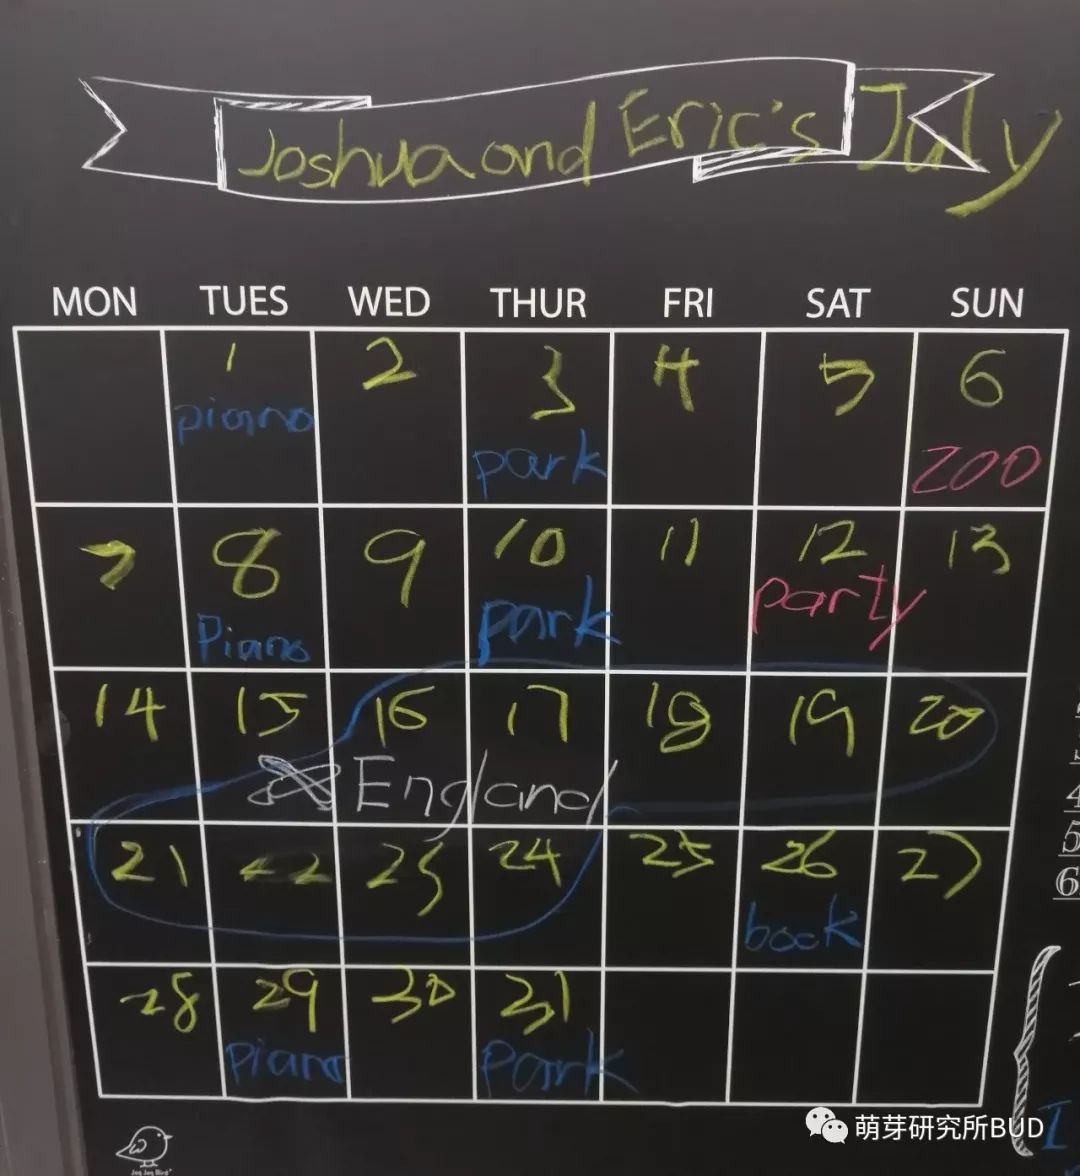 Joshua and Eric's July
MON TUES WED THUR FRI SAT SUN
1 2 3 4 5 6
piano park zoo
7 8 9 10 11 12 13
Piano park party
14 15 16 17 18 19 20
England
21 22 23 24 25 26 27
book
28 29 30 31
piano park
4
5
6
I
萌芽研究所BUD